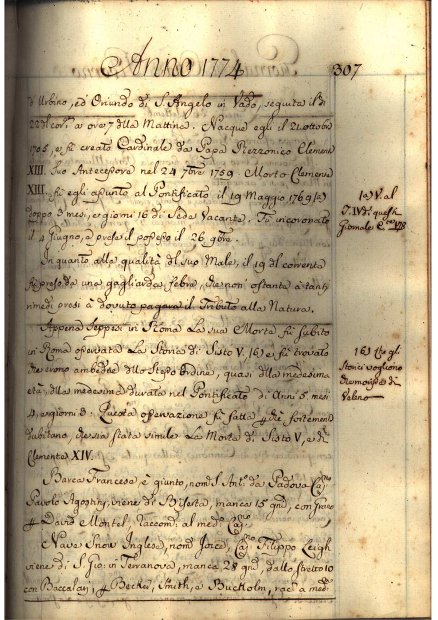 Anno 1774
307
d'Urbino, ed Oriundo di S. Angelo in Vado, seguita il dì
22 d.° cor.e a ore 7 della Mattina. Nacque egli il 31 ottobre
1705, e fù creato Cardinale da Papa Rezzonico Clemente
XIII. suo Antecessore nel 24 7bre 1759. Morto Clemente
XIII. fù egli assunto al Pontificato il 19 Maggio 1769 (a)
doppo 3 mesi, e giorni 16 di Sede Vacante. Fù incoronato
il 4 Giugno, e prese il possesso il 26 9bre.
In quanto alla qualità del suo Male, il 19 del corrente
fù preso da una gagliarda febre, che non ostante a tanti
rimedi presi à dovuto pagare il Tributo alla Natura.
Appena seppesi in Roma la sua Morte fù subito
in Roma osservata la Storia di Sisto V. (6) e fù trovato
che erono ambedue dello stesso Ordine, quasi della medesima
età, della medesima durata nel Pontificato di Anni 5 mesi
4, e giorni 3. Questa osservazione fù fatta perchè fortemente
dubitano, che sia stata simile la Morte di Sisto V, e di
Clemente XIV.
Barca Francese è giunto, nom. S. Ant.° da Padova Cap.no
Paolo Agostini, viene di Biserta, manca 15 gni, con grano
p David Montel, raccom. al med.° Cap.no
Nave Snow Inglese, nom. Joice, Cap.no Filippo Leigh
viene di S. Gio: in Terranova, manca 28 gni, dallo stretto 10
con Baccalari, p Becker, Smith, e Bucholm, rac. a med.i
(a) V. al
T. IV di questi
Giornale C.
(6) che gli
Storici vogliono
che morisse di
Veleno